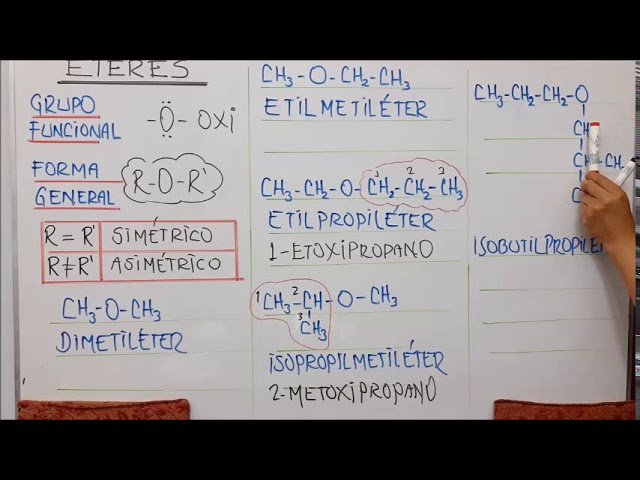 ÉTERES
GRUPO
FUNCIONAL
-Ö- OXI
FORMA
GENERAL
R-O-R'
R = R' SIMÉTRICO
R ≠ R' ASIMÉTRICO
CH₃-O-CH₃
DIMETILÉTER
CH₃-O-CH₂-CH₃
ETILMETILÉTER
1 2 2
CH₃-CH₂-O-CH₂-CH₂-CH₃
ETILPROPILÉTER
1-ETOXIPROPANO
1 2
CH₃-CH-O-CH₃
3
CH₃
ISOPROPILMETILÉTER
2-METOXIPROPANO
CH₃-CH₂-CH₂-O